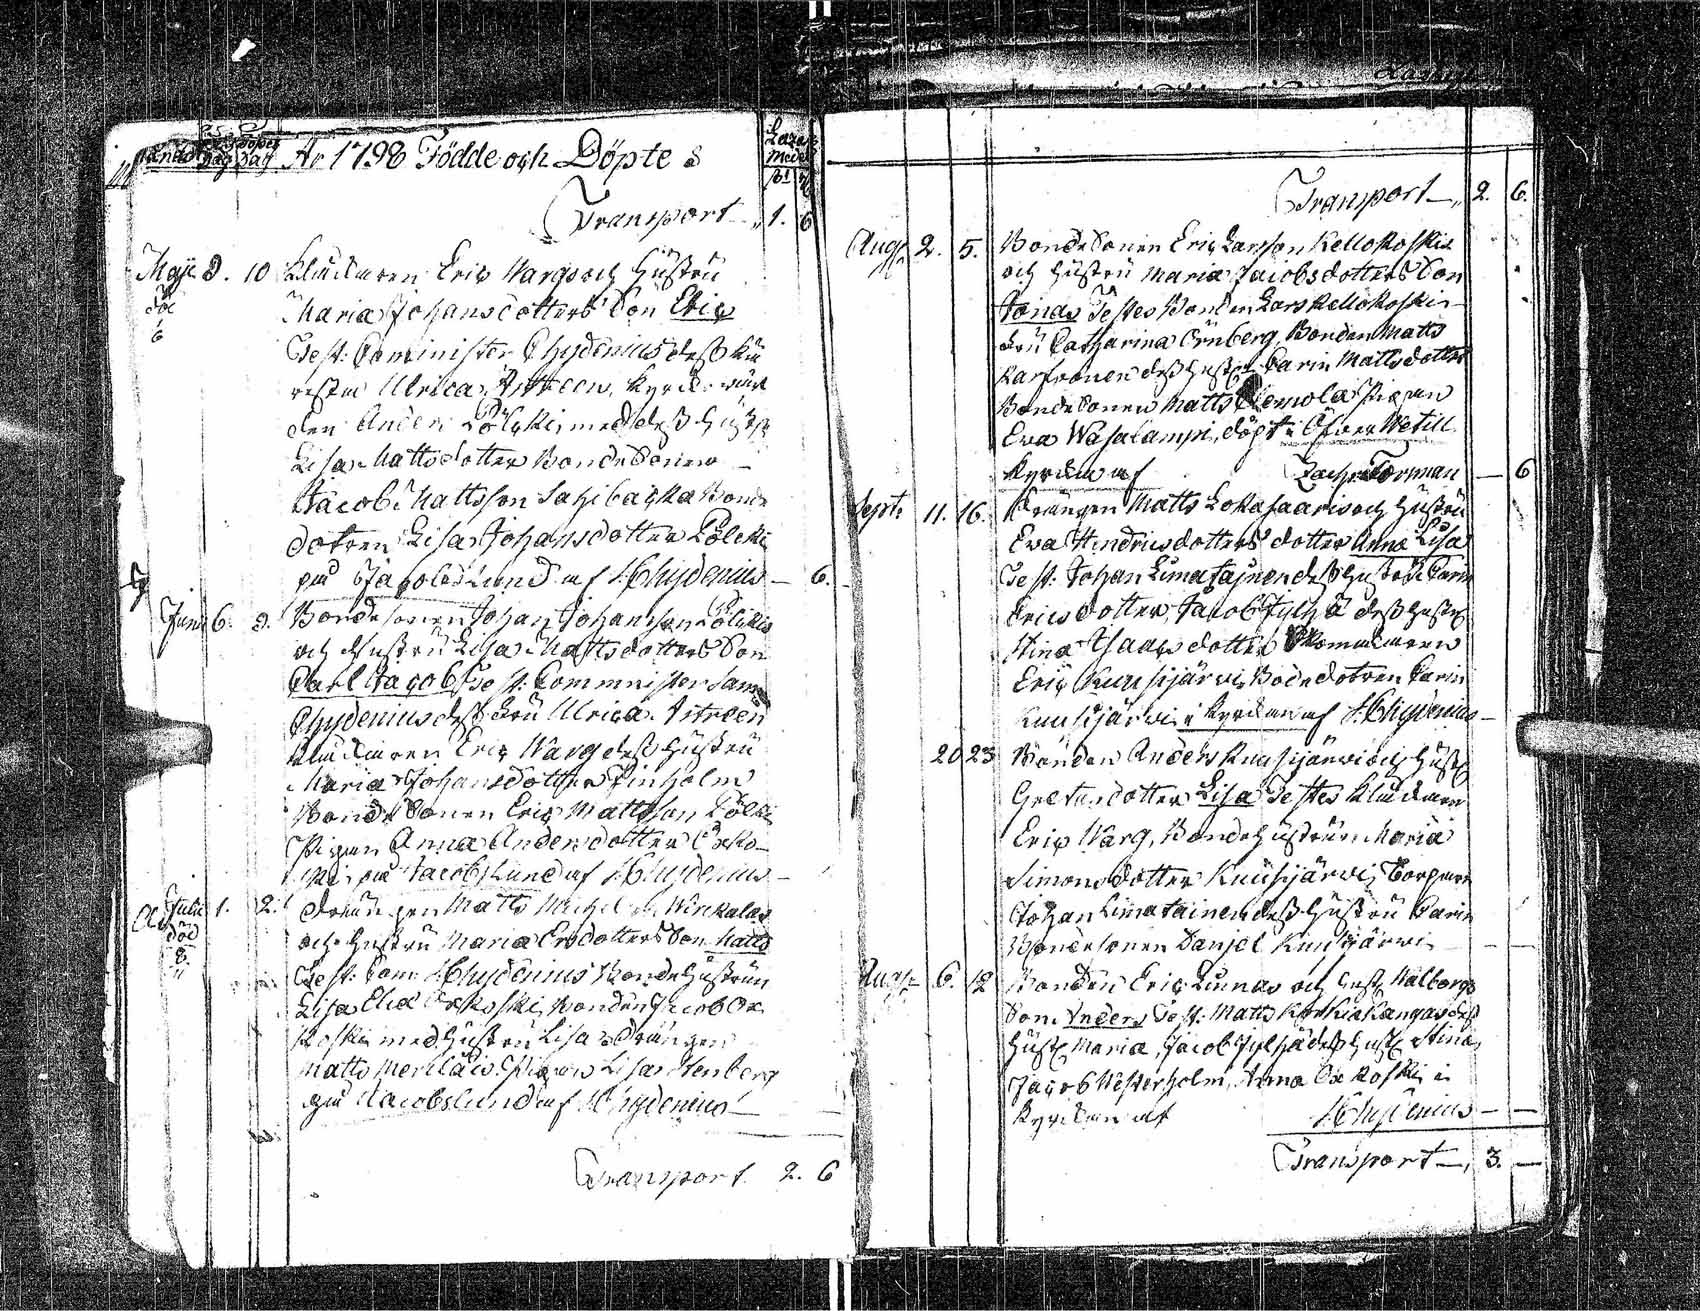 Månad dag Döpte dag År 1798 Födde och Döpte Lazar. Medel
Transport 1. 6
Maji 9. 10 Klockaren Eric Wargs och Hustru
död Maria Johansdotters Son Eric
6 Test: Comminister Chydenius dess Kä
resta Ulrica Astreen, Kyrckowär
den Anders Pölcki med dess Hust:
Lisa Mattsdotter Bondesonen
Jacob Mattsson Bonde
dotren Lisa Johansdotter Pölcki
på Jacobslund af S. Chydenius 6.
Junii 6. 9. Bondesonen Johan Johansson Pölckis
och Hustru Lisa Mattsdotters Son
Carl Jacob Test: Comminister Sam
Chydenius dess Fru Ulrica Astreen
Klockaren Eric Warg dess Hustru
Maria Johansdotter Finholm
Bonde Sonen Eric Mattsson Pölcki
Pigan Anna Andersdotter Oxko
ski på Jacobslund af S. Chydenius
Julii 1. 2. Drängen Matts Wirkalas
död och Hustru Maria Ersdotters Son Matts
8 Test: Com: S. Chydenius Bonde Hustrun
11 Lisa Oxkoski, Bonden Jacob Ox
koski med Hustru Lisa Drängen
Matts Meriläis Pigan Lisa Stenberg
på Jacobslund af S. Chydenius
Transport 2. 6
Transport 2. 6.
Aug: 2. 5. Bonde Sonen Eric Larsson Kellokoskis
och Hustru Maria Jacobsdotters Son
Jonas Testes Bonden Lars Kellokoski
Fru Catharina Örnberg, Bonden Matts
dess Hustr Carin Mattsdotter
Bonde Sonen Matts Pigan
Ewa Wasalampi, döpt i Öfwer Wetill
Kyrckan af Zach: Forsman 6
Sept: 11. 16. Drängen Matts Lokasaaris och Hustru
Ewa Hindricsdotters dotter Anna Lisa
Test: Johan Limatainen dess Hustru Carin
Ericsdotter, Jacob Jylhä dess Hustr
Stina Isaacsdotter Skomakaren
Eric Kuusijärwi, Bondedotren Carin
Kuusijärwi i Kyrckan af S. Chydenius
20 23 Bonden Anders Kuusijärwi och Hustr
Gretas dotter Lisa Testes Klockaren
Eric Warg, Bonde Hustrun Maria
Simonsdotter Kuusijärwi, Torparen
Johan Limatainen dess Hustru Carin
Bondesonen Daniel Kuusijärwi
Aug: 6. 12 Bonden Eric Linnas och Hustr Walborgs
Son Anders Test: Matts Korkiakangas dess
Hustr Maria, Jacob Jylhä dess Hustr Stina,
Jacob Westerholm, Anna Oxkoski i
Kyrckan af S. Chydenius
Transport 3.